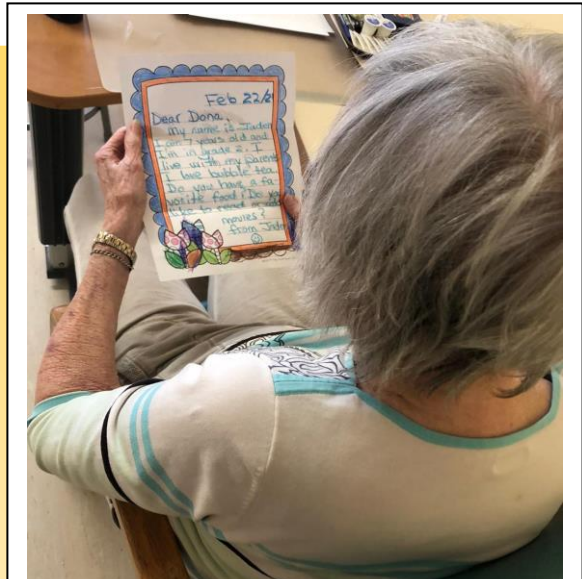 Feb 22/2
Dear Dona,
My name is Jaden
I am 7 years old and
I'm in grade 2. I
live with my parents
I love bubble tea.
Do you have a fa
vorite food? Do you
like to read
movies?
from Jaden